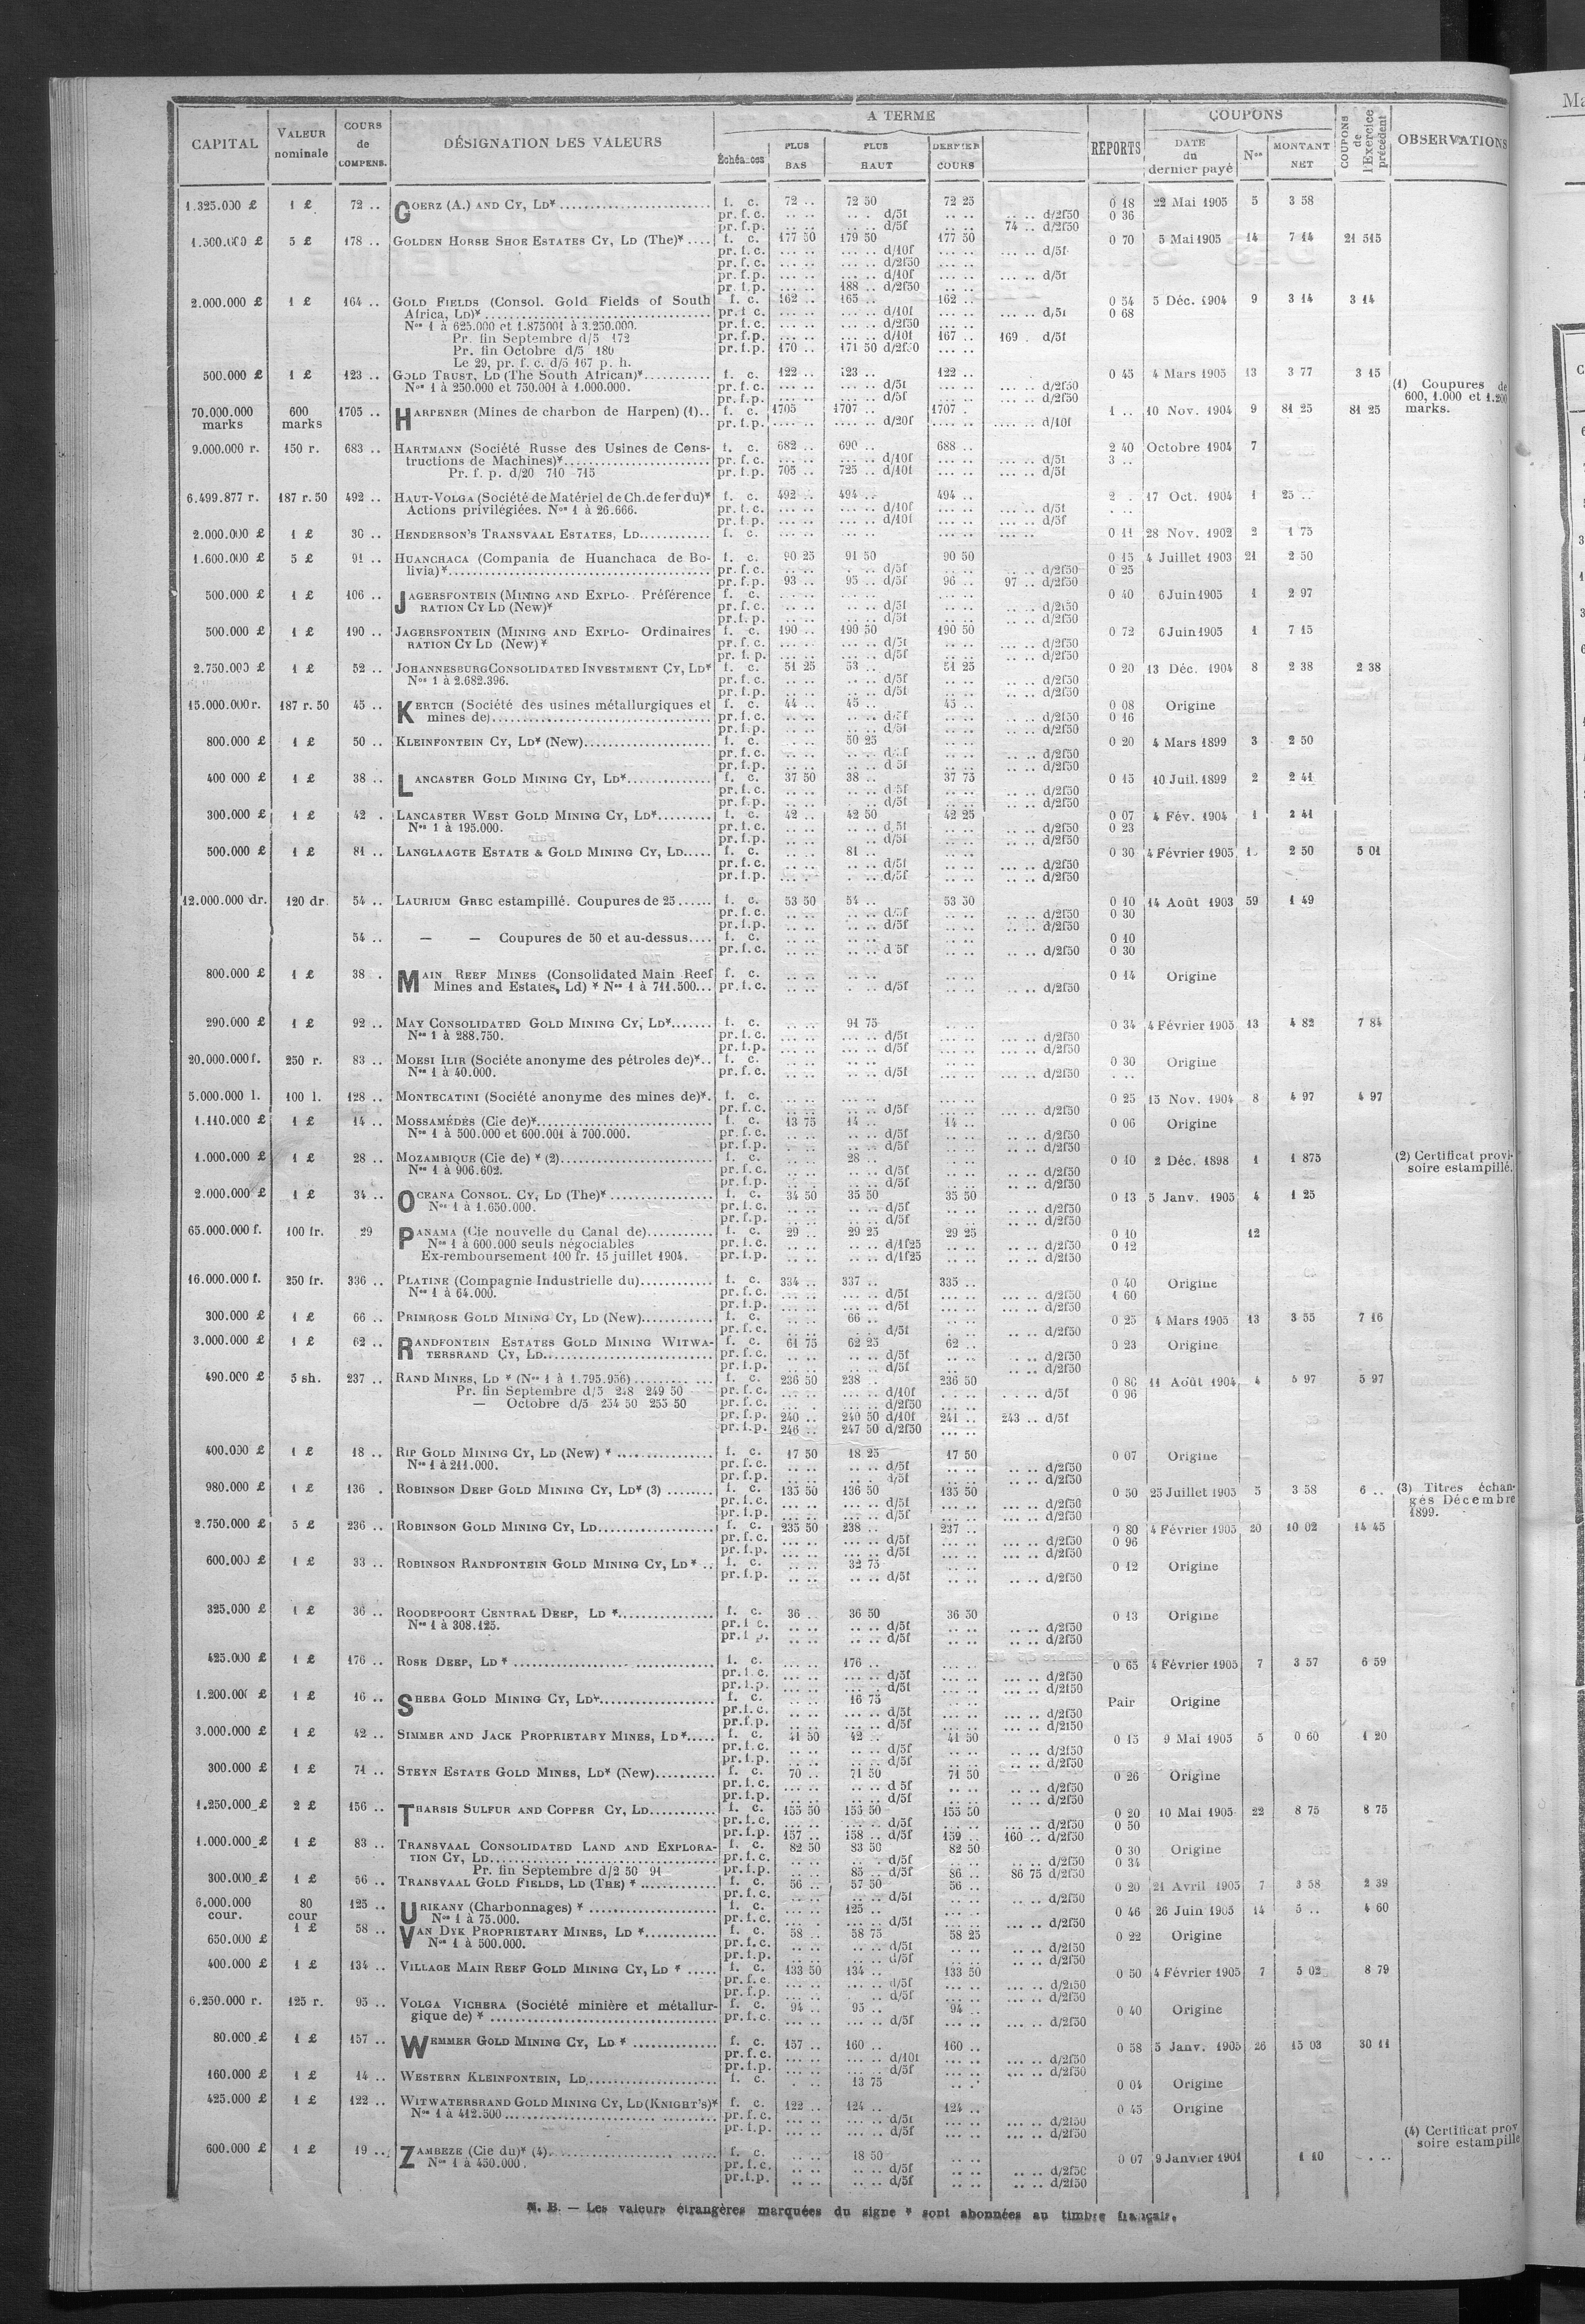 CAPITAL | VALEUR nominale | COURS de COMPENS. | DÉSIGNATION DES VALEURS | A TERME | REPORTS | COUPONS | COUPONS de l'Exercice précédent | OBSERVATIONS
Échéances | PLUS BAS | PLUS HAUT | DERNIER COURS | DATE du dernier payé | Nos | MONTANT NET
1.325.000 £ 1 £ 72 .. GOERZ (A.) AND CY, LD* f. c. 72 .. 72 50 72 25 0 18 22 Mai 1905 5 3 58
pr. f. c. .. .. .. . d/5f .. .. .. .. d/2f50 0 36
pr. f.p. .. .. .. .. d/5f .. .. 74 .. d/2f50
1.500.000 £ 5 £ 178 .. GOLDEN HORSE SHOE ESTATES CY, LD (The)* f. c. 177 50 179 50 177 50 0 70 5 Mai 1905 14 7 14 21 515
pr. f. c. ... .. ... .. d/10f ... .. ... .. d/5f
pr. f. c. ... .. ... .. d/2f50 ... ..
pr. f.p. ... .. ... .. d/10f ... .. ... .. d/5f
pr. f.p. ... .. 188 .. d/2f50 ... ..
2.000.000 £ 1 £ 164 .. GOLD FIELDS (Consol. Gold Fields of South f. c. 162 .. 165 .. 162 .. 0 54 5 Déc. 1904 9 3 14 3 14
Africa, LD)* pr. f. c. ... .. ... .. d/10f ... .. ... .. d/5f 0 68
Nos 1 à 625.000 et 1.875001 à 3.250.000. pr. f. c. ... .. ... .. d/2f50 ... ..
Pr. fin Septembre d/5 172 pr. f.p. ... .. ... .. d/10f 167 .. 169 . d/5f
Pr. fin Octobre d/5 180 pr. f.p. 170 .. 171 50 d/2f50 ... ..
Le 29, pr. f. c. d/5 167 p. h.
500.000 £ 1 £ 123 .. GOLD TRUST, LD (The South African)* f. c. 122 .. 123 .. 122 .. 0 45 4 Mars 1905 13 3 77 3 15
Nos 1 à 250.000 et 750.001 à 1.000.000. pr. f. c. ... .. ... .. d/5f ... .. ... .. d/2f50 (1) Coupures de
pr. f.p. ... .. ... .. d/5f ... .. ... .. d/2f50 600, 1.000 et 1.200
70.000.000 600 1705 .. HARPENER (Mines de charbon de Harpen) (1) f. c. 1705 1707 .. 1707 . 1 .. 10 Nov. 1904 9 81 25 81 25 marks.
marks marks pr. f.p. .... .. .... .. d/20f .... .. .... .. d/10f
9.000.000 r. 150 r. 683 .. HARTMANN (Société Russe des Usines de Cons- f. c. 682 .. 690 .. 688 .. 2 40 Octobre 1904 7
tructions de Machines)* pr. f. c. ... .. ... .. d/10f ... .. ... .. d/5f 3 ..
Pr. f. p. d/20 710 715 pr. f.p. 705 .. 725 .. d/10f ... .. ... .. d/5f
6.499.877 r. 187 r. 50 492 .. HAUT-VOLGA (Société de Matériel de Ch. de fer du)* f. c. 492 .. 494 .. 494 .. 2 . 17 Oct. 1904 1 25 ..
Actions privilégiées. Nos 1 à 26.666. pr. f. c. ... .. ... .. d/10f ... .. ... .. d/5f
pr. f.p. ... .. ... .. d/10f ... .. ... .. d/5f
2.000.000 £ 1 £ 30 .. HENDERSON'S TRANSVAAL ESTATES, LD f. c. ... .. ... .. ... .. ... .. 0 11 28 Nov. 1902 2 1 75
1.600.000 £ 5 £ 91 .. HUANCHACA (Compania de Huanchaca de Bo- f. c. 90 25 91 50 90 50 0 15 4 Juillet 1903 21 2 50
livia)* pr. f. c. .. .. . .. d/5f .. .. .. .. d/2f50 0 25
pr. f.p. 93 .. 95 .. d/5f 96 .. 97 .. d/2f50
500.000 £ 1 £ 106 .. JAGERSFONTEIN (MINING AND EXPLO- Préférence f. c. .. .. .. .. .. .. 0 40 6 Juin 1905 1 2 97
RATION CY LD (New)* pr. f. c. .. .. .. .. d/5f .. .. .. .. d/2f50
pr. f.p. .. .. .. .. d/5f .. .. .. .. d/2f50
500.000 £ 1 £ 190 .. JAGERSFONTEIN (MINING AND EXPLO- Ordinaires f. c. 190 .. 190 50 190 50 0 72 6 Juin 1905 1 7 15
RATION CY LD (New)* pr. f. c. ... .. ... .. d/5f ... .. ... .. d/2f50
pr. f.p. ... .. ... .. d/5f ... .. ... .. d/2f50
2.750.000 £ 1 £ 52 .. JOHANNESBURG CONSOLIDATED INVESTMENT CY, LD* f. c. 51 25 53 .. 51 25 0 20 13 Déc. 1904 8 2 38 2 38
Nos 1 à 2.682.396. pr. f. c. .. .. .. .. d/5f .. .. .. .. d/2f50
pr. f.p. .. .. .. .. d/5f .. .. .. .. d/2f50
15.000.000 r. 187 r. 50 45 .. KERTCH (Société des usines métallurgiques et f. c. 44 .. 45 .. 45 .. 0 08 Origine
mines de) pr. f. c. .. .. .. .. d/5f .. .. .. .. d/2f50 0 16
pr. f.p. .. .. .. .. d/5f .. .. .. .. d/2f50
800.000 £ 1 £ 50 .. KLEINFONTEIN CY, LD* (New) f. c. .. .. 50 25 .. .. 0 20 4 Mars 1899 3 2 50
pr. f. c. .. .. .. .. d/5f .. .. .. .. d/2f50
pr. f.p. .. .. .. .. d 5f .. .. .. .. d/2f50
400 000 £ 1 £ 38 .. LANCASTER GOLD MINING CY, LD* f. c. 37 50 38 .. 37 75 0 15 10 Juil. 1899 2 2 41
pr. f. c. .. .. .. .. d 5f .. .. .. .. d/2f50
pr. f.p. .. .. .. .. d/5f .. .. .. .. d/2f50
300.000 £ 1 £ 42 . LANCASTER WEST GOLD MINING CY, LD* f. c. 42 .. 42 50 42 25 0 07 4 Fév. 1904 1 2 41
Nos 1 à 195.000. pr. f. c. .. .. .. .. d 5f .. .. .. .. d/2f50 0 23
pr. f.p. .. .. .. .. d/5f .. .. .. .. d/2f50
500.000 £ 1 £ 81 .. LANGLAAGTE ESTATE & GOLD MINING CY, LD f. c. .. .. 81 .. .. .. 0 30 4 Février 1905 2 50 5 01
pr. f. c. ... .. .. .. d/5f .. .. ... .. d/2f50
pr. f.p. ... .. .. .. d/5f .. .. ... .. d/2f50
12.000.000 dr. 120 dr. 54 .. LAURIUM GREC estampillé. Coupures de 25 f. c. 53 50 54 .. 53 50 0 10 14 Août 1903 59 1 49
pr. f. c. .. .. .. .. d/5f .. .. .. .. d/2f50 0 30
pr. f.p. .. .. .. .. d/5f .. .. .. .. d/2f50
54 .. — — Coupures de 50 et au-dessus f. c. .. .. .. .. .. .. 0 10
pr. f. c. .. .. .. .. d 5f .. .. .. .. d/2f50 0 30
800.000 £ 1 £ 38 . MAIN REEF MINES (Consolidated Main Reef f. c. .. .. .. .. .. .. 0 14 Origine
Mines and Estates, Ld) * Nos 1 à 711.500 pr. f. c. .. .. . .. d/5f .. .. .. .. d/2f50
290.000 £ 1 £ 92 .. MAY CONSOLIDATED GOLD MINING CY, LD* f. c. .. .. 91 75 .. .. 0 34 4 Février 1905 13 4 82 7 84
Nos 1 à 288.750. pr. f. c. ... .. .. .. d/5f ... .. ... .. d/2f50
pr. f.p. ... .. .. .. d/5f ... .. ... .. d/2f50
20.000.000 f. 250 r. 83 .. MOESI ILIR (Sociéte anonyme des pétroles de)* f. c. .. .. .. .. .. .. 0 30 Origine
Nos 1 à 40.000. pr. f. c. .. .. .. .. d/5f .. .. ... .. d/2f50
5.000.000 l. 100 l. 128 .. MONTECATINI (Société anonyme des mines de)*. f. c. ... .. ... .. ... .. 0 25 15 Nov. 1904 8 4 97 4 97
pr. f. c. .. .. .. .. d/5f .. .. ... .. d/2f50
1.110.000 £ 1 £ 14 .. MOSSAMÉDÈS (Cie de)* f. c. 13 75 14 .. 14 .. 0 06 Origine
Nos 1 à 500.000 et 600.001 à 700.000. pr. f. c. .. .. .. .. d/5f .. .. .. .. d/2f50
pr. f.p. .. .. .. .. d/5f .. .. .. .. d/2f50
1.000.000 £ 1 £ 28 .. MOZAMBIQUE (Cie de) * (2) f. c. .. .. 28 .. .. .. 0 10 2 Déc. 1898 1 1 875 (2) Certificat provi-
Nos 1 à 906.602. pr. f. c. .. .. .. .. d/5f .. .. .. .. d/2f50 soire estampillé.
pr. f.p. .. .. .. .. d/5f .. .. .. .. d/2f50
2.000.000 £ 1 £ 34 .. OCEANA CONSOL. CY, LD (The)* f. c. 34 50 35 50 35 50 0 13 5 Janv. 1905 4 1 25
Nos 1 à 1.650.000. pr. f. c. .. .. .. .. d/5f .. .. .. .. d/2f50
pr. f.p. .. .. .. .. d/5f .. .. .. .. d/2f50
65.000.000 f. 100 fr. 29 PANAMA (Cie nouvelle du Canal de) f. c. 29 .. 29 25 29 25 0 10 12
Nos 1 à 600.000 seuls négociables pr. f. c. .. .. .. .. d/1f25 .. .. .. .. d/2f50 0 12
Ex-remboursement 100 fr. 15 juillet 1904. pr. f.p. .. .. .. .. d/1f25 .. .. .. .. d/2f50
16.000.000 f. 250 fr. 336 .. PLATINE (Compagnie Industrielle du) f. c. 334 .. 337 .. 335 .. 0 40 Origine
Nos 1 à 64.000. pr. f. c. ... .. ... .. d/5f ... .. ... .. d/2f50 1 60
pr. f.p. ... .. ... .. d/5f ... .. ... .. d/2f50
300.000 £ 1 £ 66 .. PRIMROSE GOLD MINING CY, LD (New) f. c. .. .. 66 .. .. .. 0 25 4 Mars 1905 13 3 55 7 16
pr. f. c. .. .. .. .. d/5f .. .. .. .. d/2f50
3.000.000 £ 1 £ 62 .. RANDFONTEIN ESTATES GOLD MINING WITWA- f. c. 61 75 62 25 62 .. 0 23 Origine
TERSRAND CY, LD pr. f. c. .. .. .. .. d/5f .. .. .. .. d/2f50
pr. f.p. .. .. .. .. d/5f .. .. .. .. d/2f50
490.000 £ 5 sh. 237 .. RAND MINES, LD * (Nos 1 à 1.795.956) f. c. 236 50 238 .. 236 50 0 86 11 Août 1904 4 5 97 5 97
Pr. fin Septembre d/5 248 249 50 pr. f. c. ... .. ... .. d/10f ... .. ... .. d/5f 0 96
— Octobre d/5 254 50 255 50 pr. f. c. ... .. ... .. d/2f50 ... ..
pr. f.p. 240 .. 240 50 d/10f 241 .. 243 .. d/5f
pr. f.p. 246 .. 247 50 d/2f50 ... ..
400.000 £ 1 £ 18 .. RIP GOLD MINING CY, LD (New) * f. c. 17 50 18 25 17 50 0 07 Origine
Nos 1 à 211.000. pr. f. c. .. .. .. .. d/5f .. .. .. .. d/2f50
pr. f.p. .. .. .. .. d/5f .. .. .. .. d/2f50
980.000 £ 1 £ 136 . ROBINSON DEEP GOLD MINING CY, LD* (3) f. c. 135 50 136 50 135 50 0 50 25 Juillet 1905 5 3 58 6 .. (3) Titres échan-
pr. f. c. ... .. ... .. d/5f ... .. ... .. d/2f50 gés Décembre
pr. f.p. ... .. ... .. d/5f ... .. ... .. d/2f50 1899.
2.750.000 £ 5 £ 236 .. ROBINSON GOLD MINING CY, LD f. c. 235 50 238 .. 237 .. 0 80 4 Février 1905 20 10 02 14 45
pr. f. c. ... .. ... .. d/5f ... .. ... .. d/2f50 0 96
pr. f.p. ... .. ... .. d/5f ... .. ... .. d/2f50
600.000 £ 1 £ 33 .. ROBINSON RANDFONTEIN GOLD MINING CY, LD * f. c. .. .. 32 75 .. .. 0 12 Origine
pr. f.p. .. .. .. .. d/5f .. .. .. .. d/2f50
325.000 £ 1 £ 36 .. ROODEPOORT CENTRAL DEEP, LD * f. c. 36 .. 36 50 36 50 0 13 Origine
Nos 1 à 308.125. pr. f. c. .. .. .. .. d/5f .. .. .. .. d/2f50
pr. f. p. .. .. .. .. d/5f .. .. .. .. d/2f50
425.000 £ 1 £ 176 .. ROSE DEEP, LD * f. c. ... .. 176 .. ... .. 0 65 4 Février 1905 7 3 57 6 59
pr. f. c. ... .. ... .. d/5f ... .. ... .. d/2f50
pr. f.p. ... .. ... .. d/5f ... .. ... .. d/2f50
1.200.000 £ 1 £ 16 .. SHEBA GOLD MINING CY, LD* f. c. .. .. 16 75 .. .. Pair Origine
pr. f. c. .. .. .. .. d/5f .. .. .. .. d/2f50
pr. f.p. .. .. .. .. d/5f .. .. .. .. d/2f50
3.000.000 £ 1 £ 42 .. SIMMER AND JACK PROPRIETARY MINES, LD* f. c. 41 50 42 .. 41 50 0 15 9 Mai 1905 5 0 60 1 20
pr. f. c. .. .. .. .. d/5f .. .. .. .. d/2f50
pr. f.p. .. .. .. .. d/5f .. .. .. .. d/2f50
300.000 £ 1 £ 71 .. STEYN ESTATE GOLD MINES, LD* (New) f. c. 70 .. 71 50 71 50 0 26 Origine
pr. f. c. ... .. .. .. d 5f .. .. .. .. d/2f50
pr. f.p. ... .. .. .. d/5f .. .. .. .. d/2f50
1.250.000 £ 2 £ 156 .. THARSIS SULFUR AND COPPER CY, LD f. c. 155 50 155 50 155 50 0 20 10 Mai 1905 22 8 75 8 75
pr. f. c. ... .. ... .. d/5f ... .. ... .. d/2f50 0 50
pr. f.p. 157 .. 158 .. d/5f 159 .. 160 .. d/2f50
1.000.000 £ 1 £ 83 .. TRANSVAAL CONSOLIDATED LAND AND EXPLORA- f. c. 82 50 83 50 82 50 0 30 Origine
TION CY, LD pr. f. c. .. .. .. .. d/5f .. .. .. .. d/2f50 0 34
Pr. fin Septembre d/2 50 91 pr. f.p. .. .. 85 .. d/5f 86 .. 86 75 d/2f50
300.000 £ 1 £ 56 .. TRANSVAAL GOLD FIELDS, LD (THE) * f. c. 56 .. 57 50 56 .. 0 20 21 Avril 1905 7 3 58 2 39
pr. f. c. .. .. .. .. d/5f .. .. .. .. d/2f50
6.000.000 80 125 .. URIKANY (Charbonnages) * f. c. ... .. 125 .. ... .. 0 46 26 Juin 1905 14 5 .. 4 60
cour. cour Nos 1 à 75.000. pr. f. c. ... . ... .. d/5f ... .. ... .. d/2f50
650.000 £ 1 £ 58 .. VAN DYK PROPRIETARY MINES, LD * f. c. 58 .. 58 75 58 25 0 22 Origine
Nos 1 à 500.000. pr. f. c. .. .. .. .. d/5f .. .. .. .. d/2f50
pr. f.p. .. .. .. .. d/5f .. .. .. .. d/2f50
400.000 £ 1 £ 134 .. VILLAGE MAIN REEF GOLD MINING CY, LD * f. c. 133 50 134 .. 133 50 0 50 4 Février 1905 7 5 02 8 79
pr. f. c. ... .. ... .. d/5f ... .. ... .. d/2f50
pr. f.p. ... .. .. d/5f ... .. ... .. d/2f50
6.250.000 r. 125 r. 95 .. VOLGA VICHERA (Société minière et métallur- f. c. 94 .. 95 .. 94 .. 0 40 Origine
gique de) * pr. f. c. ... .. ... .. d/5f ... .. ... .. d/2f50
80.000 £ 1 £ 157 .. WEMMER GOLD MINING CY, LD * f. c. 157 .. 160 .. 160 .. 0 58 5 Janv. 1905 26 15 03 30 11
pr. f. c. ... .. ... .. d/10f ... .. ... .. d/2f50
pr. f.p. ... .. ... .. d/5f ... .. ... .. d/2f50
160.000 £ 1 £ 14 .. WESTERN KLEINFONTEIN, LD f. c. . .. 13 75 .. .. 0 04 Origine
425.000 £ 1 £ 122 .. WITWATERSRAND GOLD MINING CY, LD (KNIGHT'S)* f. c. 122 .. 124 .. 124 .. 0 45 Origine
Nos 1 à 412.500 pr. f. c. ... .. ... .. d/5f ... .. ... .. d/2f50
pr. f.p. ... .. ... .. d/5f ... .. ... .. d/2f50 (4) Certificat prov
600.000 £ 1 £ 19 .. ZAMBEZE (Cie du)* (4) f. c. .. .. 18 50 .. .. 0 07 9 Janvier 1901 1 10 . .. soire estampillé
Nos 1 à 450.000. pr. f. c. .. .. .. .. d/5f .. .. .. .. d/2f50
pr. f.p. .. .. .. .. d/5f .. .. .. .. d/2f50
N. B. — Les valeurs étrangères marquées du signe * sont abonnées au timbre français.
Ma